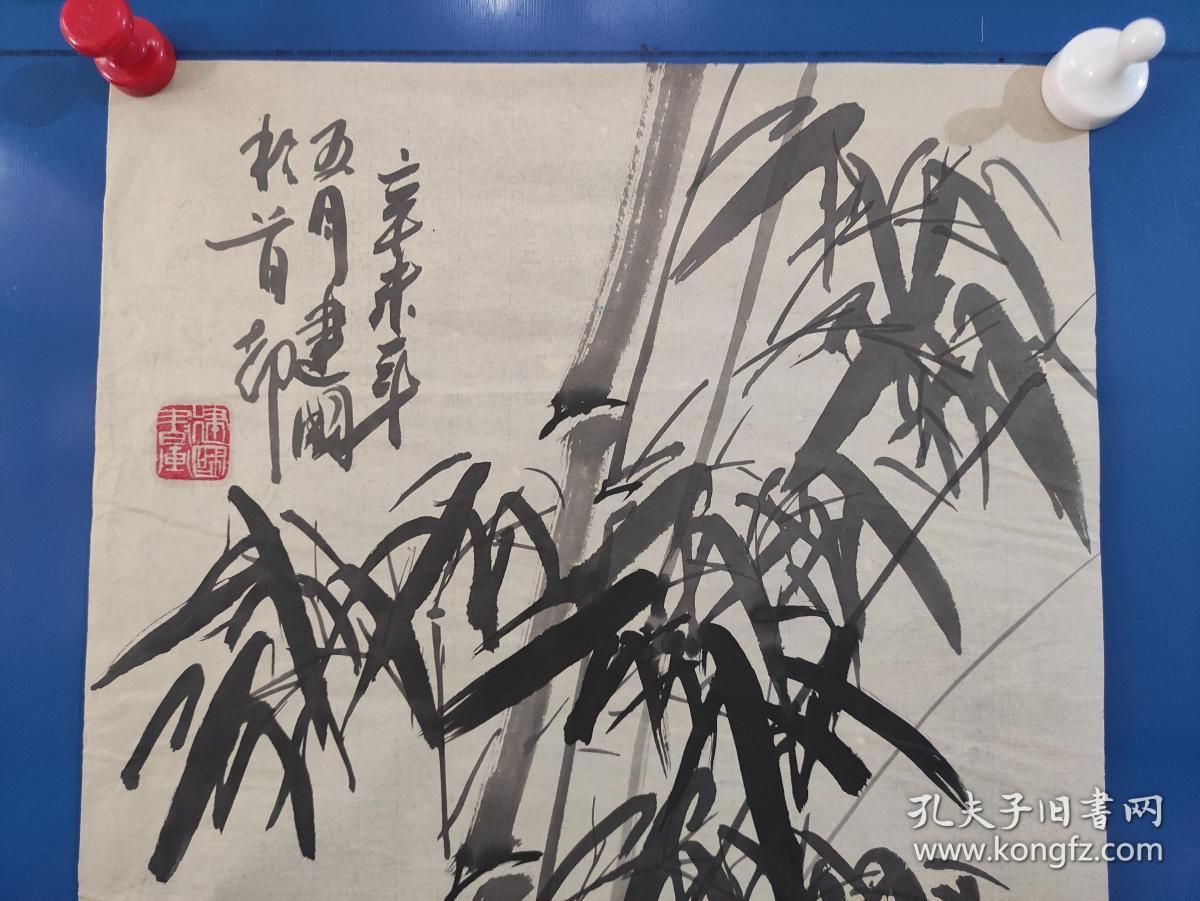 辛未年
五月建国
於首都
建國書畫
孔夫子旧書网
www.kongfz.com